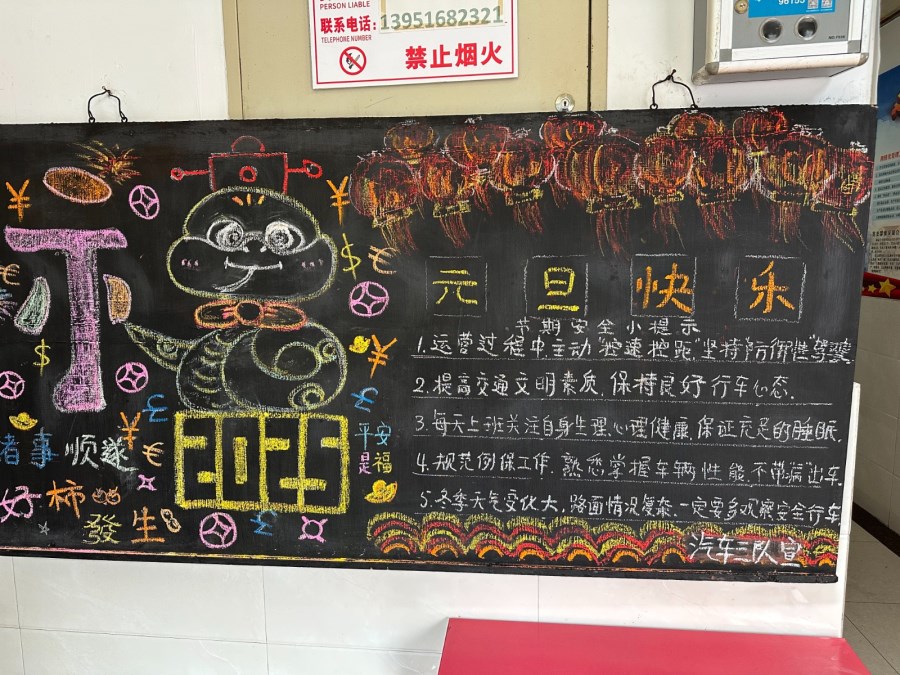 PERSON LIABLE
联系电话: 13951682321
TELEPHONE NUMBER
禁止烟火
元旦快乐
节期安全小提示
1.运营过程中主动"控速控距"坚持"防御性"驾驶.
2.提高交通文明素质.保持良好行车心态.
3.每天上班关注自身生理.心理健康.保证充足的睡眠.
4.规范例保工作.熟悉掌握车辆性能.不带"病"出车.
5.冬季天气变化大,路面情况复杂.一定要多观察安全行车
汽车三队宣
2025
平安
是福
者事 顺遂
好柿
發生